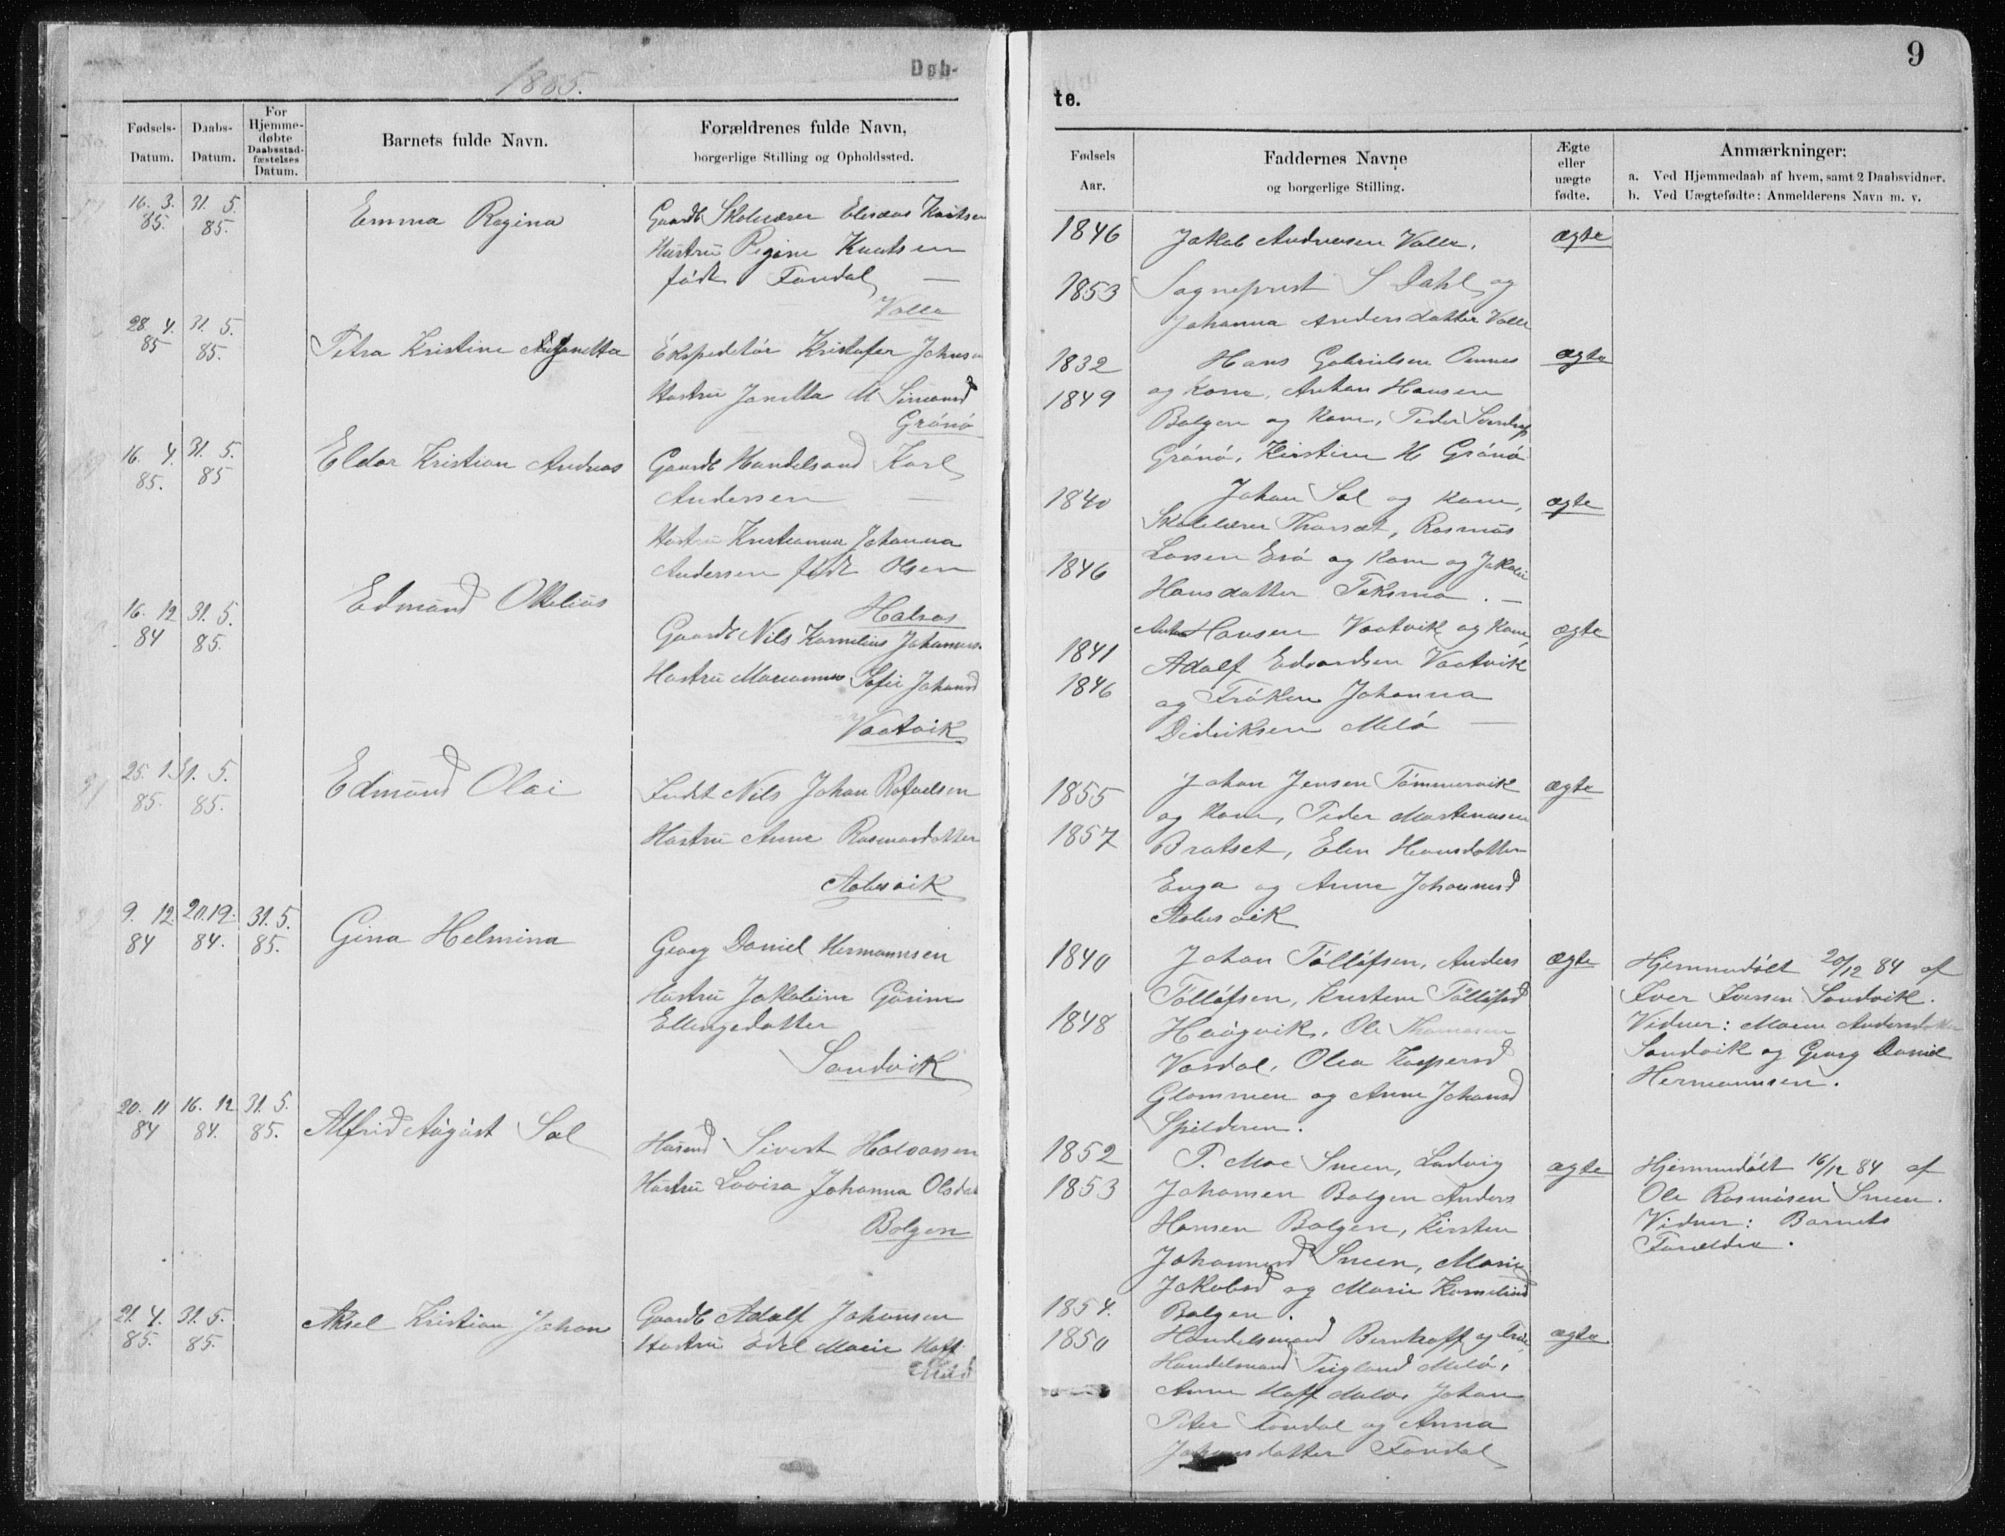 1885.
Døb-
Fødsels-
Datum.
Daabs-
Datum.
For
Hjemme-
døbte
Daabsstad-
fæstelses
Datum.
Barnets fulde Navn.
Forældrenes fulde Navn,
borgerlige Stilling og Opholdssted.
16. 3. 31. 5.
85. 85.
Emma Regina
Gaardb Skolelærer Eliseus Knutsen
Hustru Regine Knutsen
født Fondal
Valla
28. 4. 31. 5.
85 85.
Petra Kristine
Ekspeditør Kristofer Johnsen
Hustru Janetta M Simonsd
Grønø
16. 4. 31. 5.
85. 85
Eldor Kristian Andreas
Gaardb Handelsmand Karl
Andersen
Hustru Kristianna Johanna
Andersen født Olsen
Halsos
16. 12 31. 5.
84 85.
Edmund Ottelius
Gaardb Nils Kornelius Johannes.
Hustru Marianne Sofie Johansd
Vaatvik
25. 1. 31. 5.
85. 85.
Edmund Olai
Indst Nils Johan Rafaelsen
Hustru Anne Rasmusdatter
Aabesvik
9. 12. 20. 12. 31. 5.
84 84. 85.
Gina Helmina
Georg Daniel Hermannsen
Hustru Jakobine Gurine
Ellingsdatter
Sandvik
20. 11 16. 12 31. 5.
84 84. 85.
Alfrid August Sal
Husmd Sivert Halvorsen
Hustru Lovisa Johanna Olsdat
Bolgen
21. 4. 31. 5.
85. 85.
Aksel Kristian Johan
Gaardb Adolf Johansen
Hustru Edel Marie Hoff
9
te.
Fødsels
Aar.
Faddernes Navne
og borgerlige Stilling.
Ægte
eller
uægte
fødte.
Anmærkninger:
a. Ved Hjemmedaab af hvem, samt 2 Daabsvidner.
b. Ved Uægtefødte: Anmelderens Navn m. v.
1846
Jakob Andreasen Valla.
ægte
1853
Sogneprest S Dahl og
Johanna Andersdatter Valla
1832
Hans Gabrielsen Ornes
ægte
1849
og Kone, Anton Hansen
Bolgen og Kone, Peder
Grønø, Kirstine H Grønø
1840
Johan Sal og Kone,
ægte
Skolelærer Thorset, Rasmus
1846
Larsen Esø og Kone og
Hansdatter Teksmo.
Hansen Vaatvik og Kone,
ægte
1841
Adolf Edvardsen Vaatvik
1846
og Frøken Johanna
Didriksen Melø
1855
Johan Jensen Tømmervik
ægte
1857
og Kone, Peder Martinusen
Bratset, Elen Hansdatter
Enga og Anne Johannesd
Aabesvik
1840
Johan Tølløfsen, Anders
ægte
Hjemmedøbt 20/12 84 af
Tølløfsen, Kristine Tølløfsd
Iver Iversen Sandvik.
1848
Haugvik, Ole Thomasen
Vidner: Maren Andersdatter
Vasdal, Olea Kaspersd
Sandvik og Georg Daniel
Glommen og Anne Johansd
Hermannsen.
Spilderen.
1852
P. Moe Sneen, Ludvig
ægte
Hjemmedøbt 16/12 84 af
1853
Johansen Bolgen Anders
Ole Rasmusen Sneen.
Hansen Bolgen, Kirsten
Vidner: Barnets
Johannesd Sneen, Marie
Forældre.
Jakobsd og Marie Korneliusd
1854.
Bolgen.
1850
Handelsmand Bernhoff og Frue,
ægte
Handelsmand Melø,
Anne Hoff Johan
Peter Fondal og Anna
Johansdatter Fondal